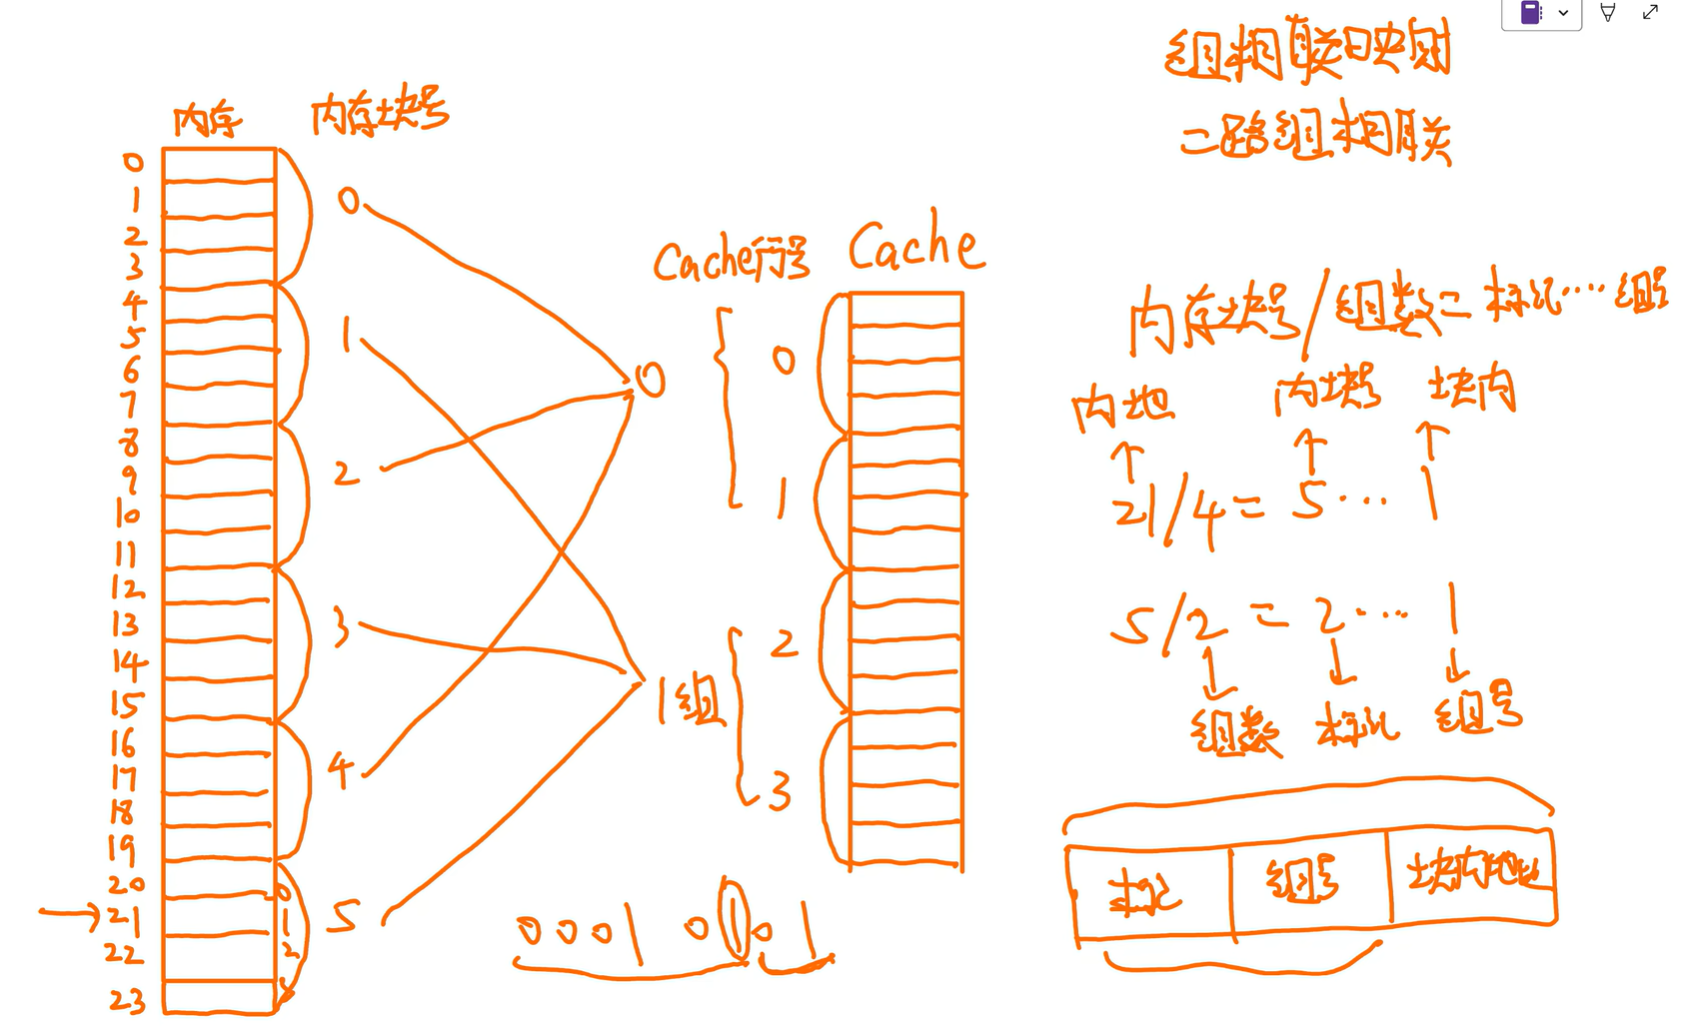 组相联映射
二路组相联
内存
内存块号
0
1
2
3
4
5
6
7
8
9
10
11
12
13
14
15
16
17
18
19
20
21
22
23
0
1
2
3
4
5
0
1
2
0
1组
Cache行号
Cache
0
1
2
3
内存块号/组数=标记····组号
内地
内块号
块内
21/4=5···1
5/2=2····1
组数
标记
组号
标记
组号
块内地址
0001 0101